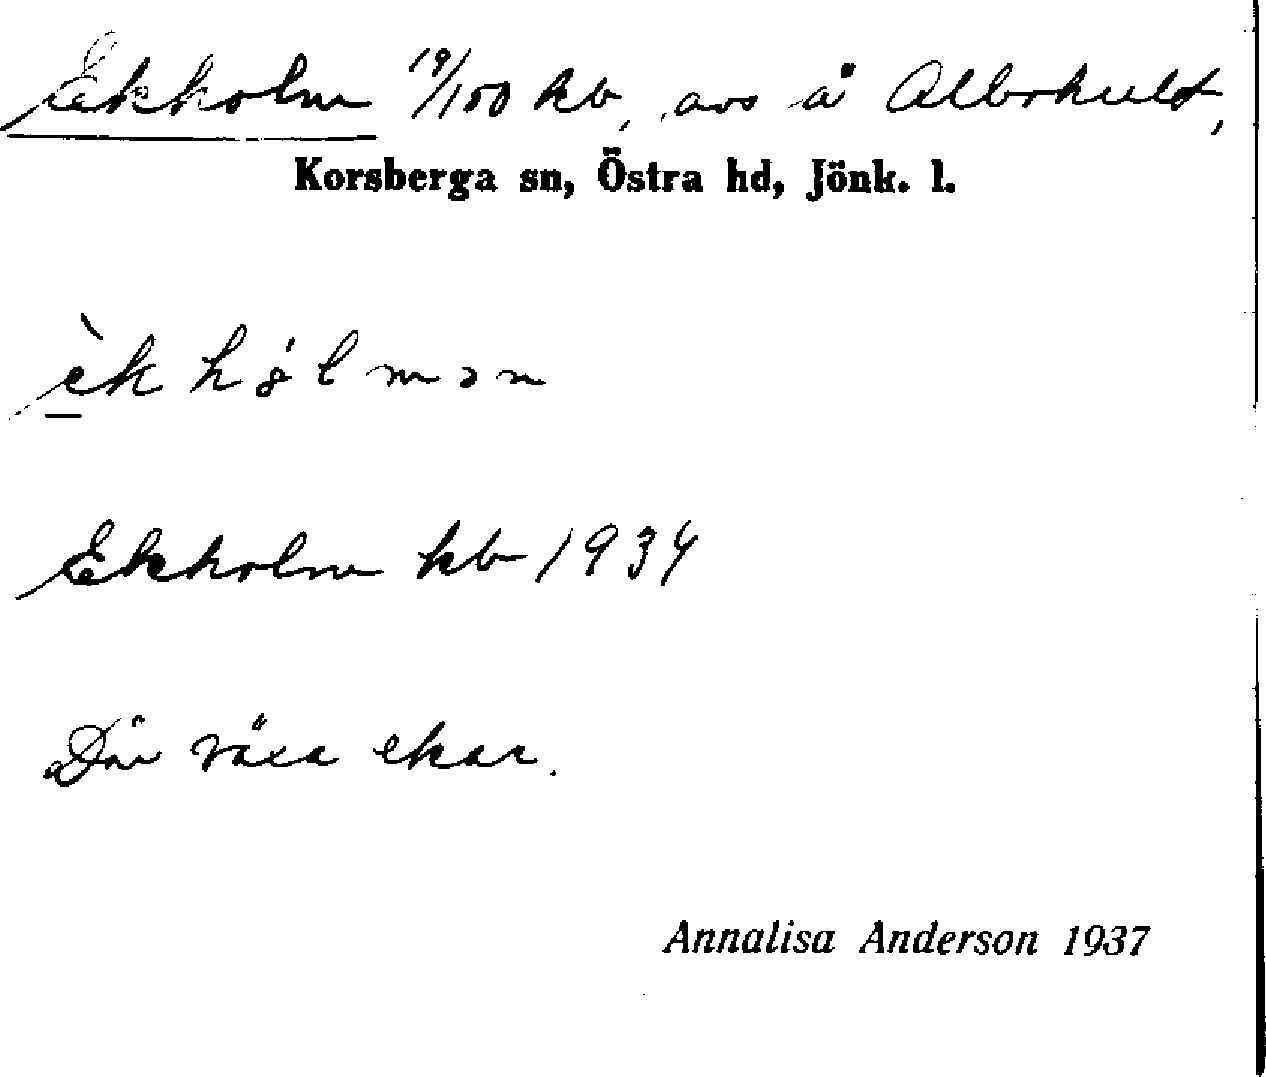 Ekholm 19/100 kb, avs å Albokult,
Korsberga sn, Östra hd, Jönk. l.
Ekholm kb 1934
Där växa ekar.
Annalisa Anderson 1937